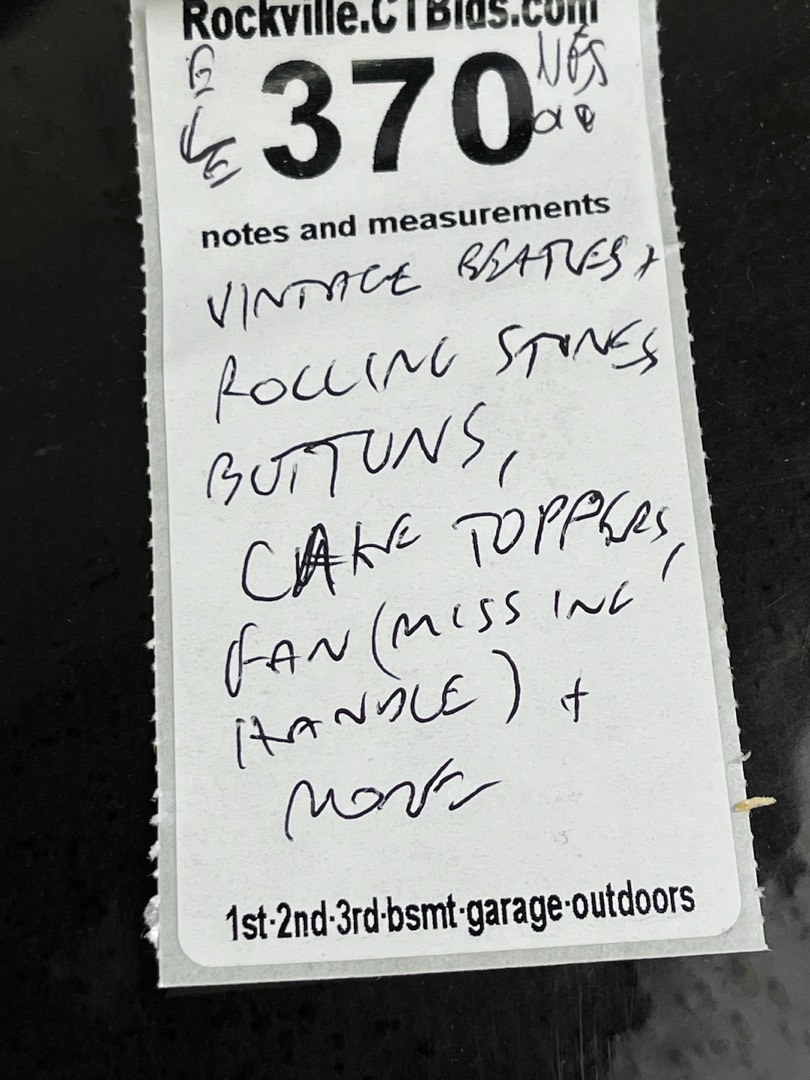 Rockville.CTBids.com
370
notes and measurements
VINTAGE BEATLES +
ROLLING STONES
BUTTONS,
CAKE TOPPERS,
FAN (MISSING
HANDLE) +
MORE
1st·2nd·3rd·bsmt·garage·outdoors